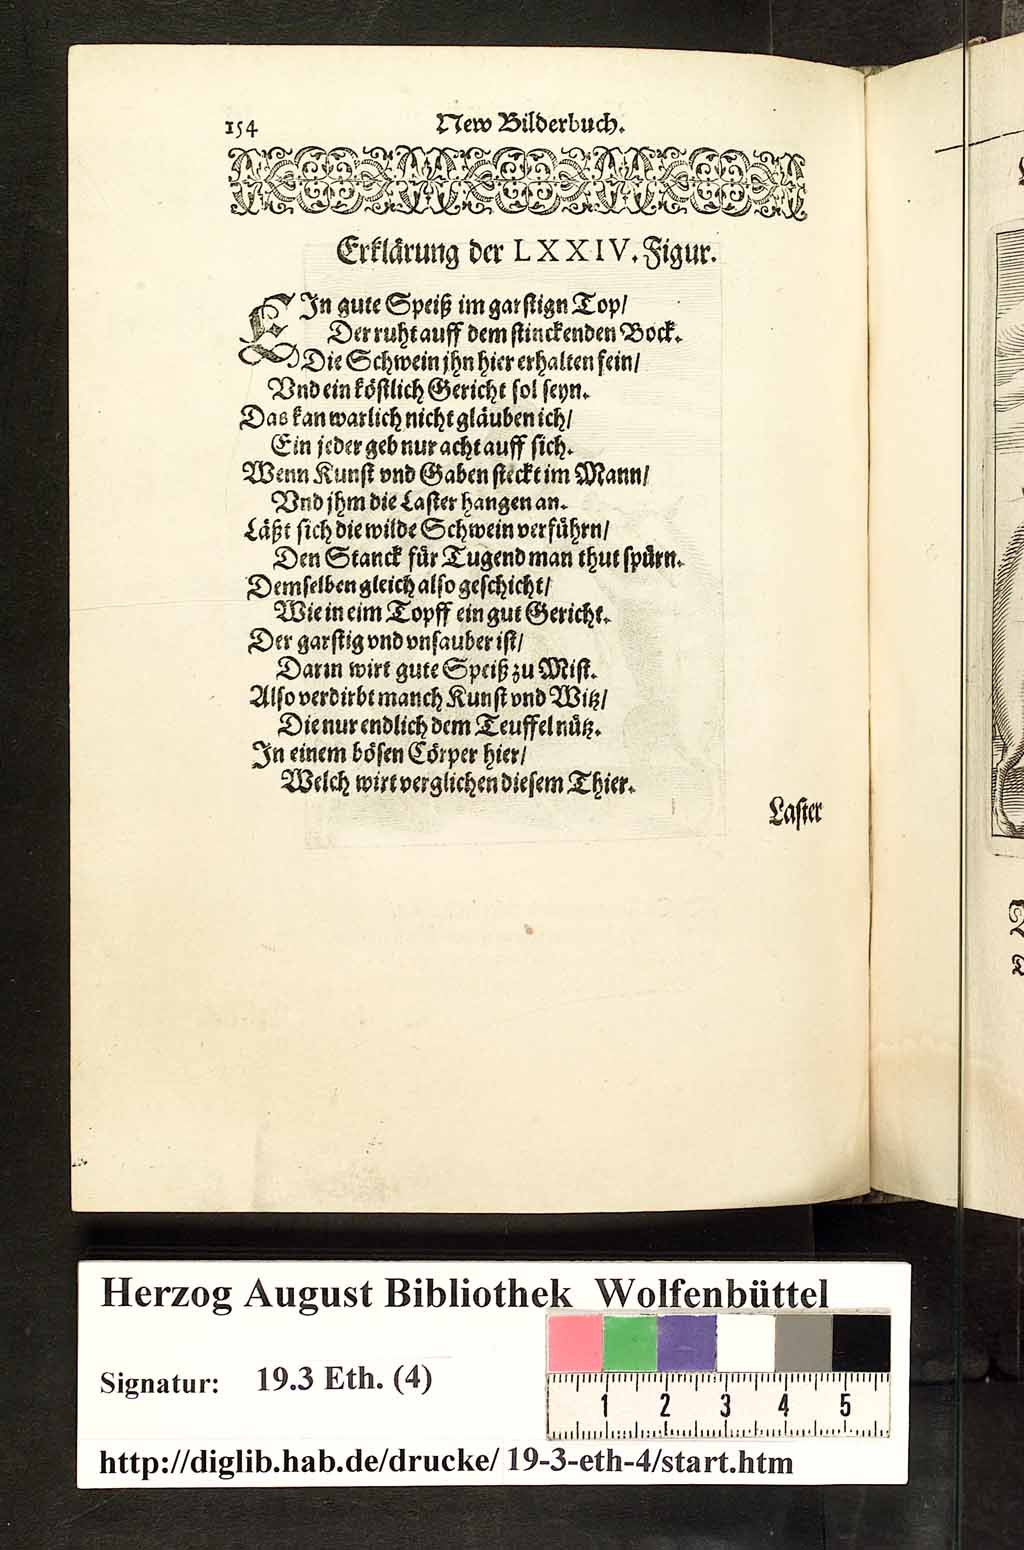 154 New Bilderbuch.
Erklärung der LXXIV. Figur.
EIn gute Speiß im garstign Top/
Der ruht auff dem stinckenden Bock.
Die Schwein jhn hier erhalten fein/
Vnd ein köstlich Gericht sol seyn.
Das kan warlich nicht gläuben ich/
Ein jeder geb nur acht auff sich.
Wenn Kunst vnd Gaben steckt im Mann/
Vnd jhm die Laster hangen an.
Läßt sich die wilde Schwein verführn/
Den Stanck für Tugend man thut spürn.
Demselben gleich also geschicht/
Wie in eim Topff ein gut Gericht.
Der garstig vnd vnsauber ist/
Darin wirt gute Speiß zu Mist.
Also verdirbt manch Kunst vnd Witz/
Die nur endlich dem Teuffel nütz.
In einem bösen Cörper hier/
Welch wirt verglichen diesem Thier.
Laster
Herzog August Bibliothek Wolfenbüttel
Signatur: 19.3 Eth. (4)
1 2 3 4 5
http://diglib.hab.de/drucke/ 19-3-eth-4/start.htm